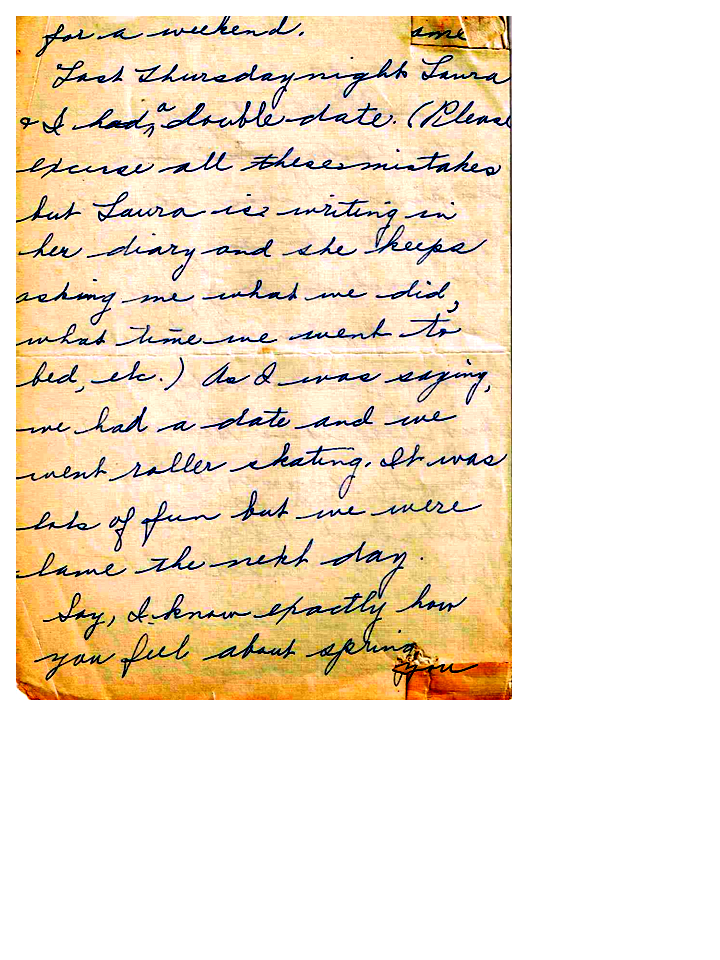 for a weekend. ame
Last Thursday night Laura
& I had a double date. (Please
excuse all these mistakes
but Laura is writing in
her diary and she keeps
asking me what we did,
what time we went to
bed, etc.) As I was saying,
we had a date and we
went roller skating. It was
lots of fun but we were
lame the next day.
Say, I know exactly how
you feel about spring
you